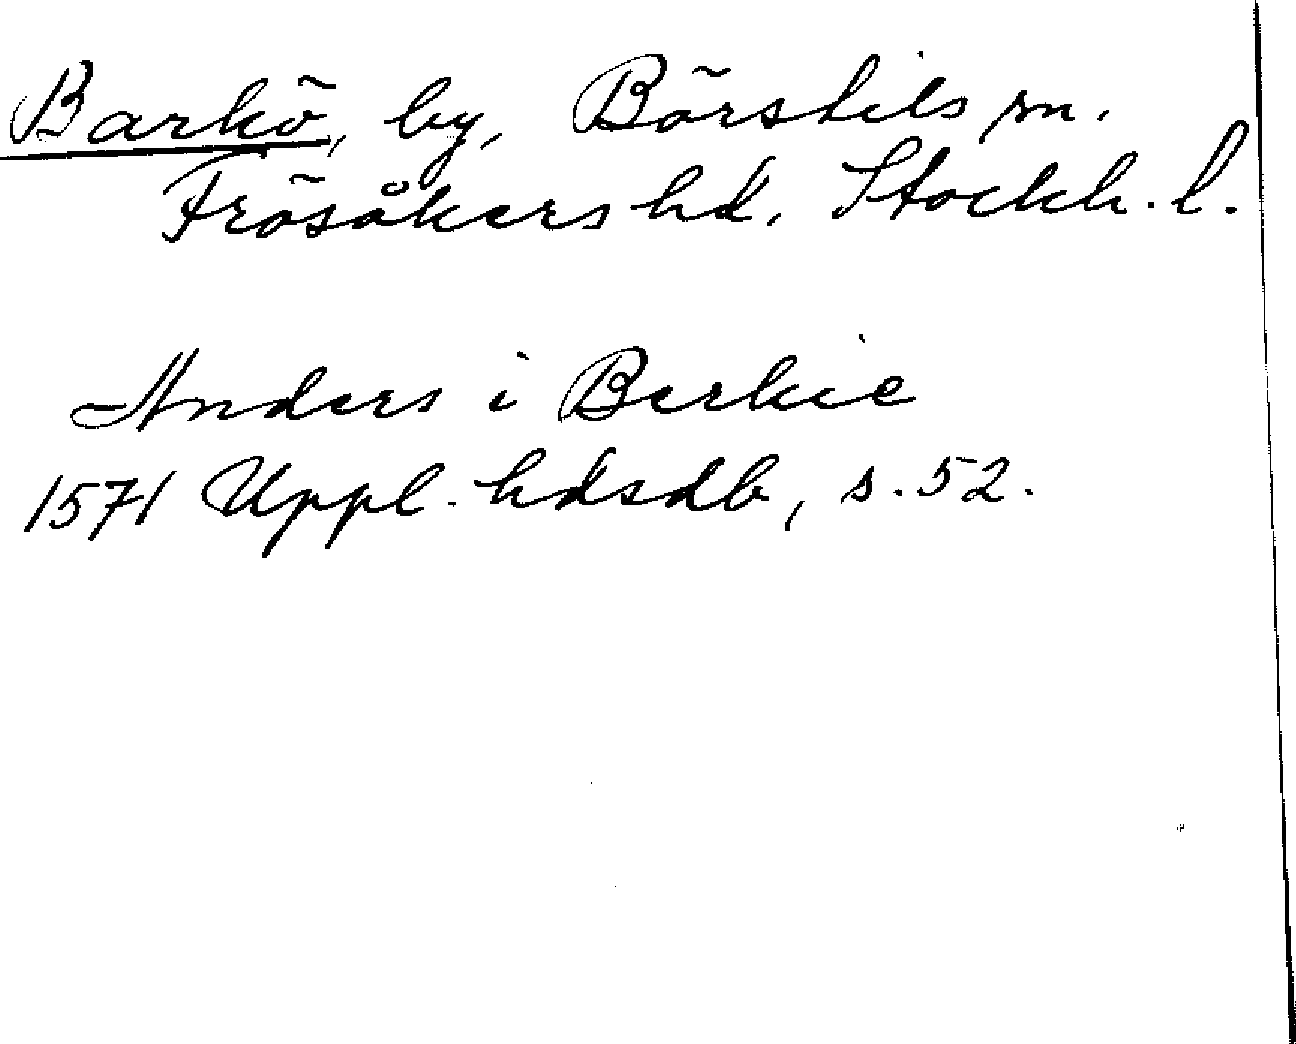 Barkö, by, Börstils sn.
Frösåkers hd. Stockh. l.
Anders i Berkie
1571 Uppl. hdsdb, s. 52.